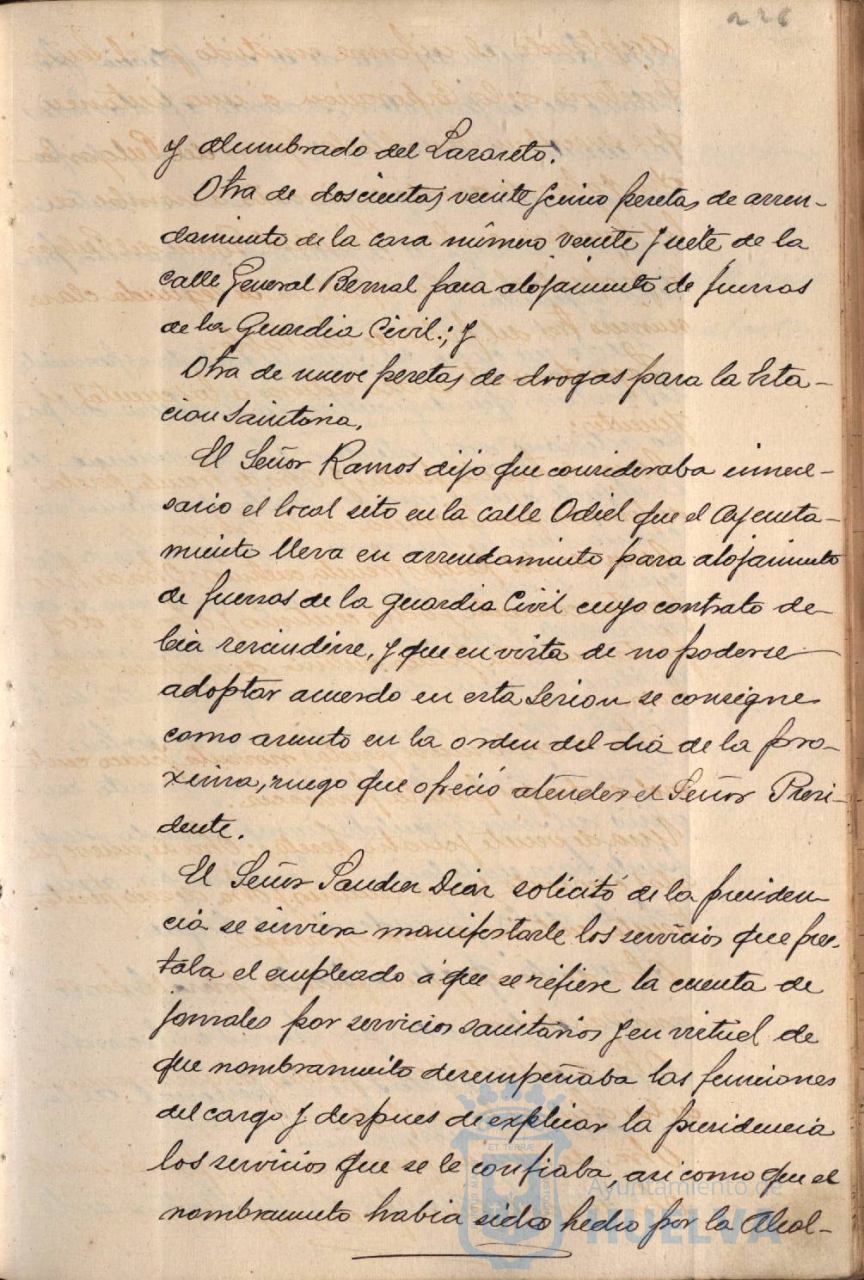 226
y alumbrado del Lazareto.
Otra de doscientas veinte y cinco pesetas de arren-
damiento de la casa número veinte y siete de la
calle General Bernal para alojamiento de fuerzas
de la Guardia Civil.; y
Otra de nueve pesetas de drogas para la Esta-
cion Sanitaria.
El Señor Ramos dijo que consideraba innece-
sario el local sito en la calle Odiel que el Ayunta-
miento lleva en arrendamiento para alojamiento
de fuerzas de la guardia Civil cuyo contrato de-
bia rescindirse, y que en vista de no poderse
adoptar acuerdo en esta Sesion se consigne
como asunto en la orden del dia de la pro-
xima, ruego que ofreció atender el Señor Presi-
dente.
El Señor Sanchez Diaz solicitó de la presiden-
cia se sirviera manifestarle los servicios que pres-
taba el empleado á que se refiere la cuenta de
jornales por servicios sanitarios y en virtud de
que nombramiento desempeñaba las funciones
del cargo y despues de explicar la presidencia
los servicios que se le confiaba, asi como que el
nombramiento habia sido hecho por la Alcal-
ET TERRA
Ayuntamiento de
HUELVA